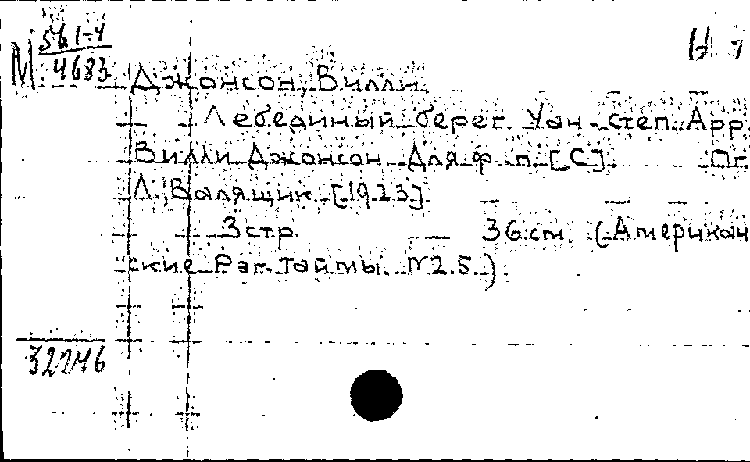 М 561-4
4683
Джонсон, Вилли
Лебединый берег. Уан-степ. Арр.
Вилли Джонсон. Для ф-п. [С]. Пг.
Л. Валящик. [1923]
3 стр. 36 см. (Американ
ские Рэг-Таймы. №25.)
32246